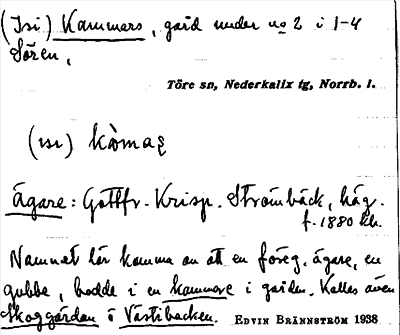 (Isi) Kammars, gård under no 2 i 1-4
Sören,
Töre sn, Nederkalix tg, Norrb. l.
(ısı) kòmaʂ
Ägare: Gottfr. Krisp. Strömbäck, häg.
f. 1880 kh.
Namnet lär komma av att en föreg. ägare, en
gubbe, bodde i en kammare i gården. Kallas även
Skoggårdan o Västibacken. EDVIN BRÄNNSTRÖM 1938